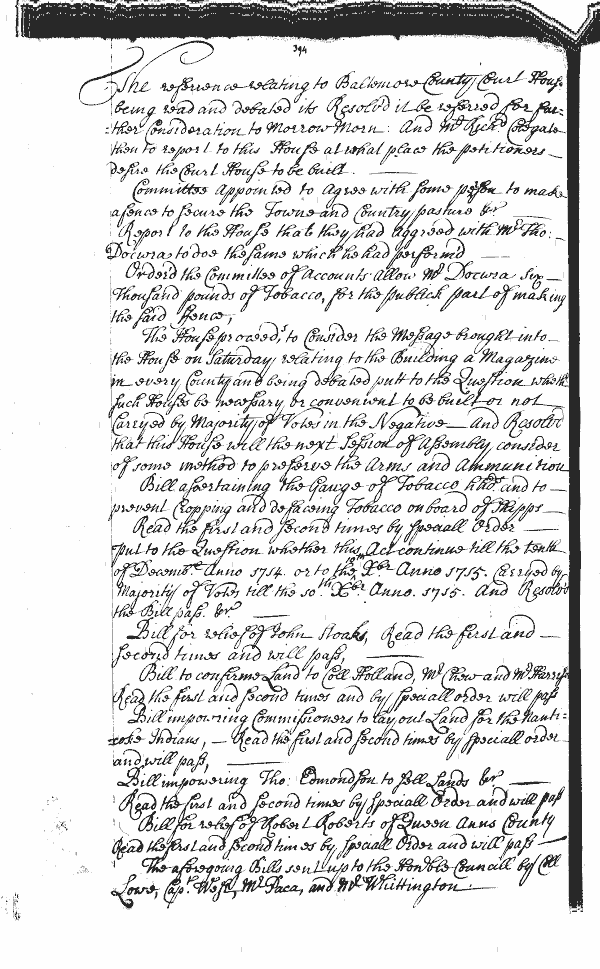 394
The reference relating to Baltemore County Court House
being read and debated its Resolvd it be referred for fur-
ther Consideration to Morrow Morn: And Mr Richd Colegate
then to report to this House at what place the petitioners
desire the Court House to be built
Committee Appointed to Agree with some person to make
a fence to secure the Towne and Country pasture &c
Report to the House that they had aggreed with Mr Tho:
Docwra to doe the same which he had performd
Orderd the Committee of Accounts allow Mr Docwra Six
Thousand pounds of Tobacco, for the publick part of making
the said fence,
The House proceeds to Consider the Message brought into
the House on Saturday relating to the Building a Magazine
in every County and being debated putt to the Question wheth
such Houses be necessary or convenient to be built or not
Carryed by Majority of Votes in the Negative And Resolvd
that this House will the next Session of Assembly consider
of some method to preserve the Arms and Ammunition
Bill ascertaining the Gauge of Tobacco hhds and to
prevent Cropping and defaceing Tobacco onboard of Shipps
Read the first and second times by speciall Order
Put to the Question whether this Act continue till the tenth
of Decembr Anno 1714. or to the 10th Xbr Anno 1715. Carryed by
Majority of Votes till the 10th Xbr Anno. 1715. And Resolvd
the Bill pass. &c
Bill for relief of John Sloaks, Read the first and
second times and will pass,
Bill to confirme Land to Coll Holland, Mr Chew and Mr Harriss
Read the first and second times and by speciall order will pass
Bill impowring Commissioners to lay out Land for the Nanti-
coke Indians, — Read the first and second times by speciall order
and will pass,
Bill impowering Tho: Edmondson to sell Lands &c
Read the first and second times by speciall Order and will pass
Bill for relief of Robert Roberts of Queen Anns County
Read the first and second times by speciall Order and will pass
The aforegoing Bills sent up to the Honble Councill by Coll
Lowe, Capt West, Mr Paca, and Mr Whittington